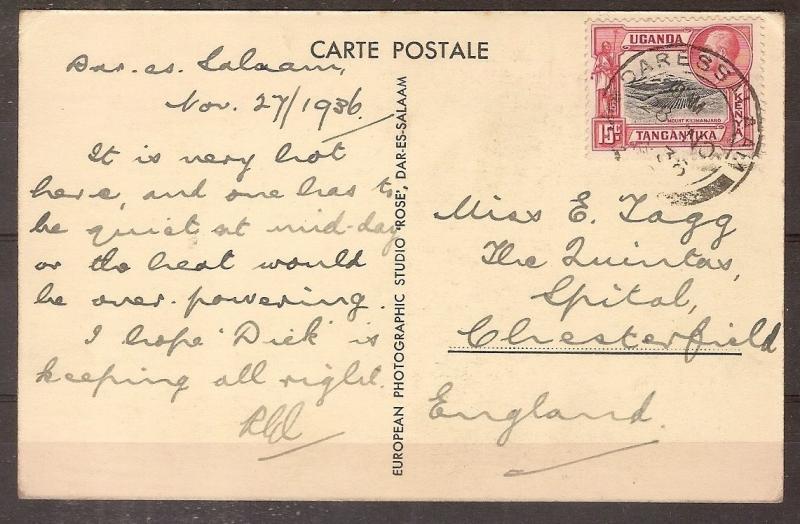 CARTE POSTALE
Dar. es. Salaam,
Nov. 27/1936.
It is very hot
here, and one has to
be quiet at mid-day
or the heat would
be over-powering.
I hope 'Dick' is
keeping all right.
EUROPEAN PHOTOGRAPHIC STUDIO 'ROSE', DAR-ES-SALAAM
UGANDA
KENYA
MOUNT KILIMANJARO
15c
TANGANYIKA
DAR ES SALAAM
Miss E. Tagg
The Quintas,
Spital,
Chesterfield
England.